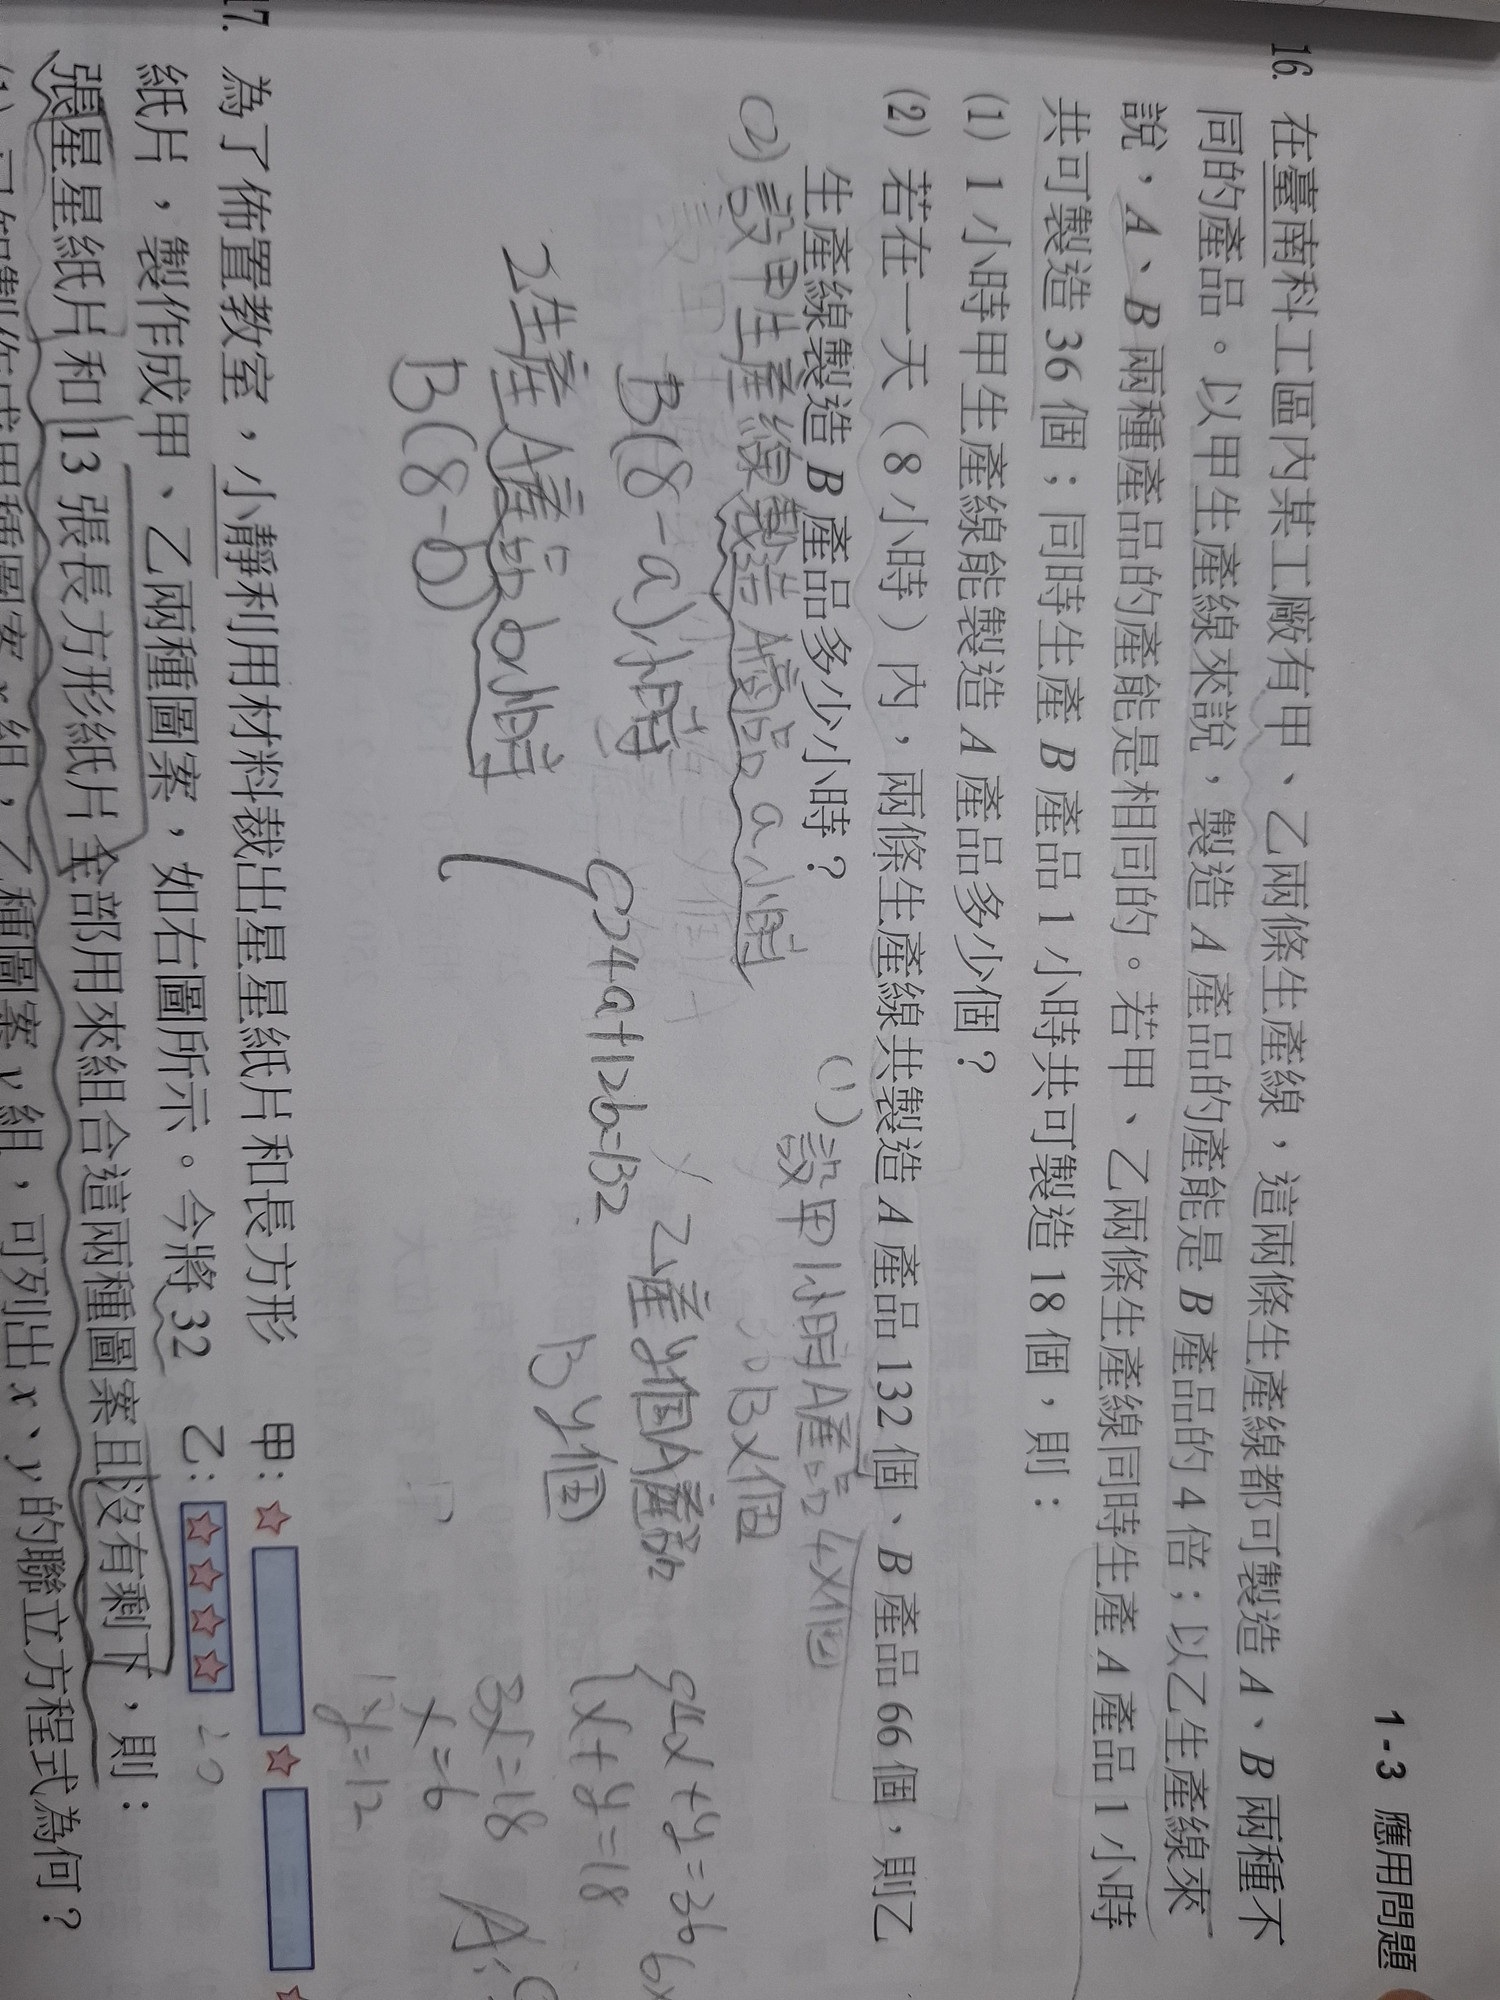 1-3 應用問題
16. 在臺南科工區內某工廠有甲、乙兩條生產線，這兩條生產線都可製造 A、B 兩種不
同的產品。以甲生產線來說，製造 A 產品的產能是 B 產品的 4 倍；以乙生產線來
說，A、B 兩種產品的產能是相同的。若甲、乙兩條生產線同時生產 A 產品 1 小時
共可製造 36 個；同時生產 B 產品 1 小時共可製造 18 個，則：
(1) 1 小時甲生產線能製造 A 產品多少個？
(2) 若在一天（8 小時）內，兩條生產線共製造 A 產品 132 個、B 產品 66 個，則乙
生產線製造 B 產品多少小時？
(2) 設甲生產線製造 A產品 a小時
B(8-a)小時
乙生產A產品b小時
B(8-b)
24a+12b=132
(1) 設甲1小時A產品4x個
Bx個
乙產y個A產品
B y個
4x+y=36
x+y=18
3x=18
x=6
y=12
A:
17. 為了佈置教室，小靜利用材料裁出星星紙片和長方形
紙片，製作成甲、乙兩種圖案，如右圖所示。今將 32
張星星紙片和 13 張長方形紙片全部用來組合這兩種圖案且沒有剩下，則：
甲：
乙：
20
x 組，乙種圖案 y 組，可列出 x、y 的聯立方程式為何？